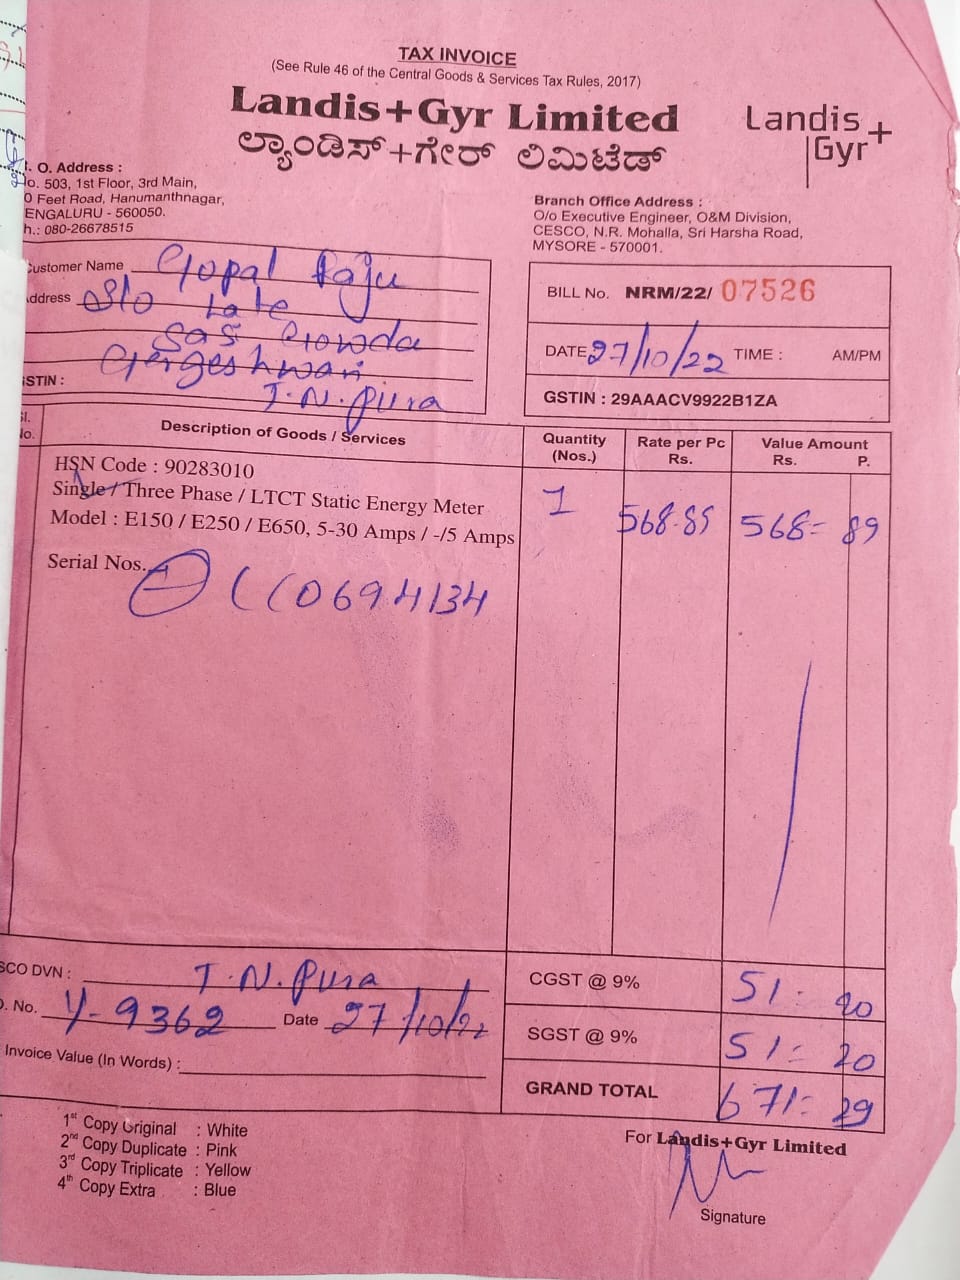 TAX INVOICE
(See Rule 46 of the Central Goods & Services Tax Rules, 2017)
Landis+Gyr Limited
ಲ್ಯಾಂಡಿಸ್+ಗೇರ್ ಲಿಮಿಟೆಡ್
Landis+
Gyr+
. O. Address :
o. 503, 1st Floor, 3rd Main,
0 Feet Road, Hanumanthnagar,
ENGALURU - 560050.
h.: 080-26678515
Branch Office Address :
O/o Executive Engineer, O&M Division,
CESCO, N.R. Mohalla, Sri Harsha Road,
MYSORE - 570001.
ustomer Name Gopal Raju
ddress S/o Late
Gowda
Gergeshwari
STIN :
T.N.Pura
BILL No. NRM/22/ 07526
DATE 27/10/22 TIME : AM/PM
GSTIN : 29AAACV9922B1ZA
Sl. No. Description of Goods / Services Quantity (Nos.) Rate per Pc Rs. Value Amount Rs. P.
HSN Code : 90283010
Single / Three Phase / LTCT Static Energy Meter
Model : E150 / E250 / E650, 5-30 Amps / -/5 Amps
1 568.89 568= 89
Serial Nos. 0694134
SCO DVN : T.N.Pura
. No. Y-9362 Date 27/10/22
Invoice Value (In Words) :
CGST @ 9% 51= 20
SGST @ 9% 51= 20
GRAND TOTAL 671= 29
1st Copy Original : White
2nd Copy Duplicate : Pink
3rd Copy Triplicate : Yellow
4th Copy Extra : Blue
For Landis+Gyr Limited
Signature